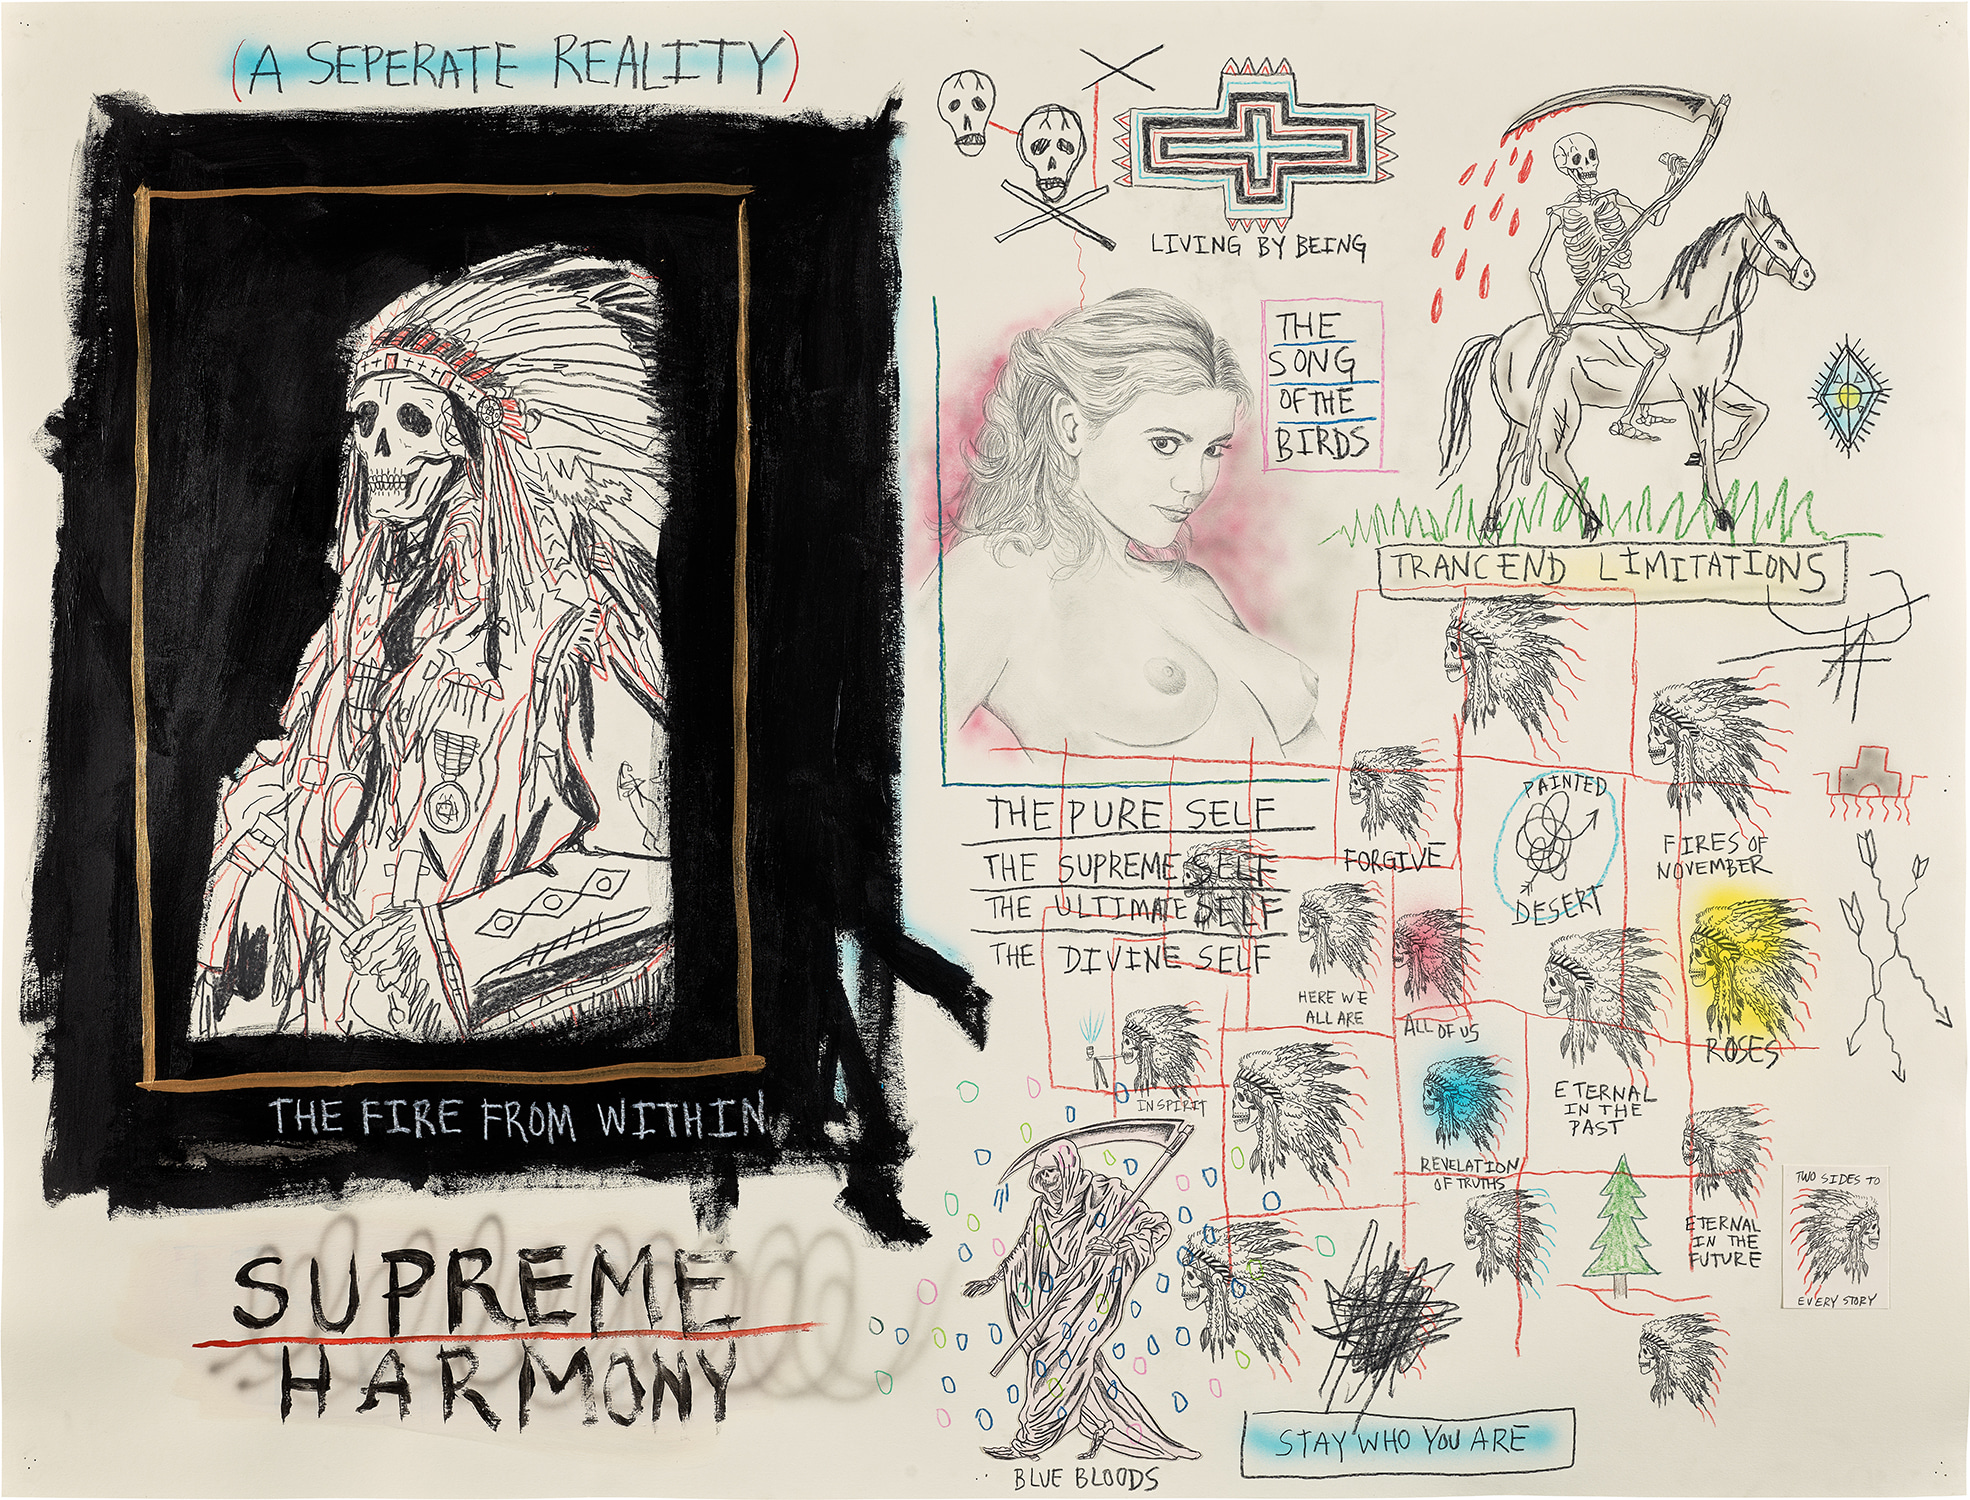 (A SEPERATE REALITY)
THE FIRE FROM WITHIN
SUPREME
HARMONY
LIVING BY BEING
THE
SONG
OF THE
BIRDS
TRANCEND LIMITATIONS
THE PURE SELF
THE SUPREME SELF
THE ULTIMATE SELF
THE DIVINE SELF
FORGIVE
PAINTED
DESERT
FIRES OF
NOVEMBER
HERE WE
ALL ARE
ALL OF US
ROSES
IN SPIRIT
ETERNAL
IN THE
PAST
REVELATION
OF TRUTHS
ETERNAL
IN THE
FUTURE
TWO SIDES TO
EVERY STORY
STAY WHO YOU ARE
BLUE BLOODS